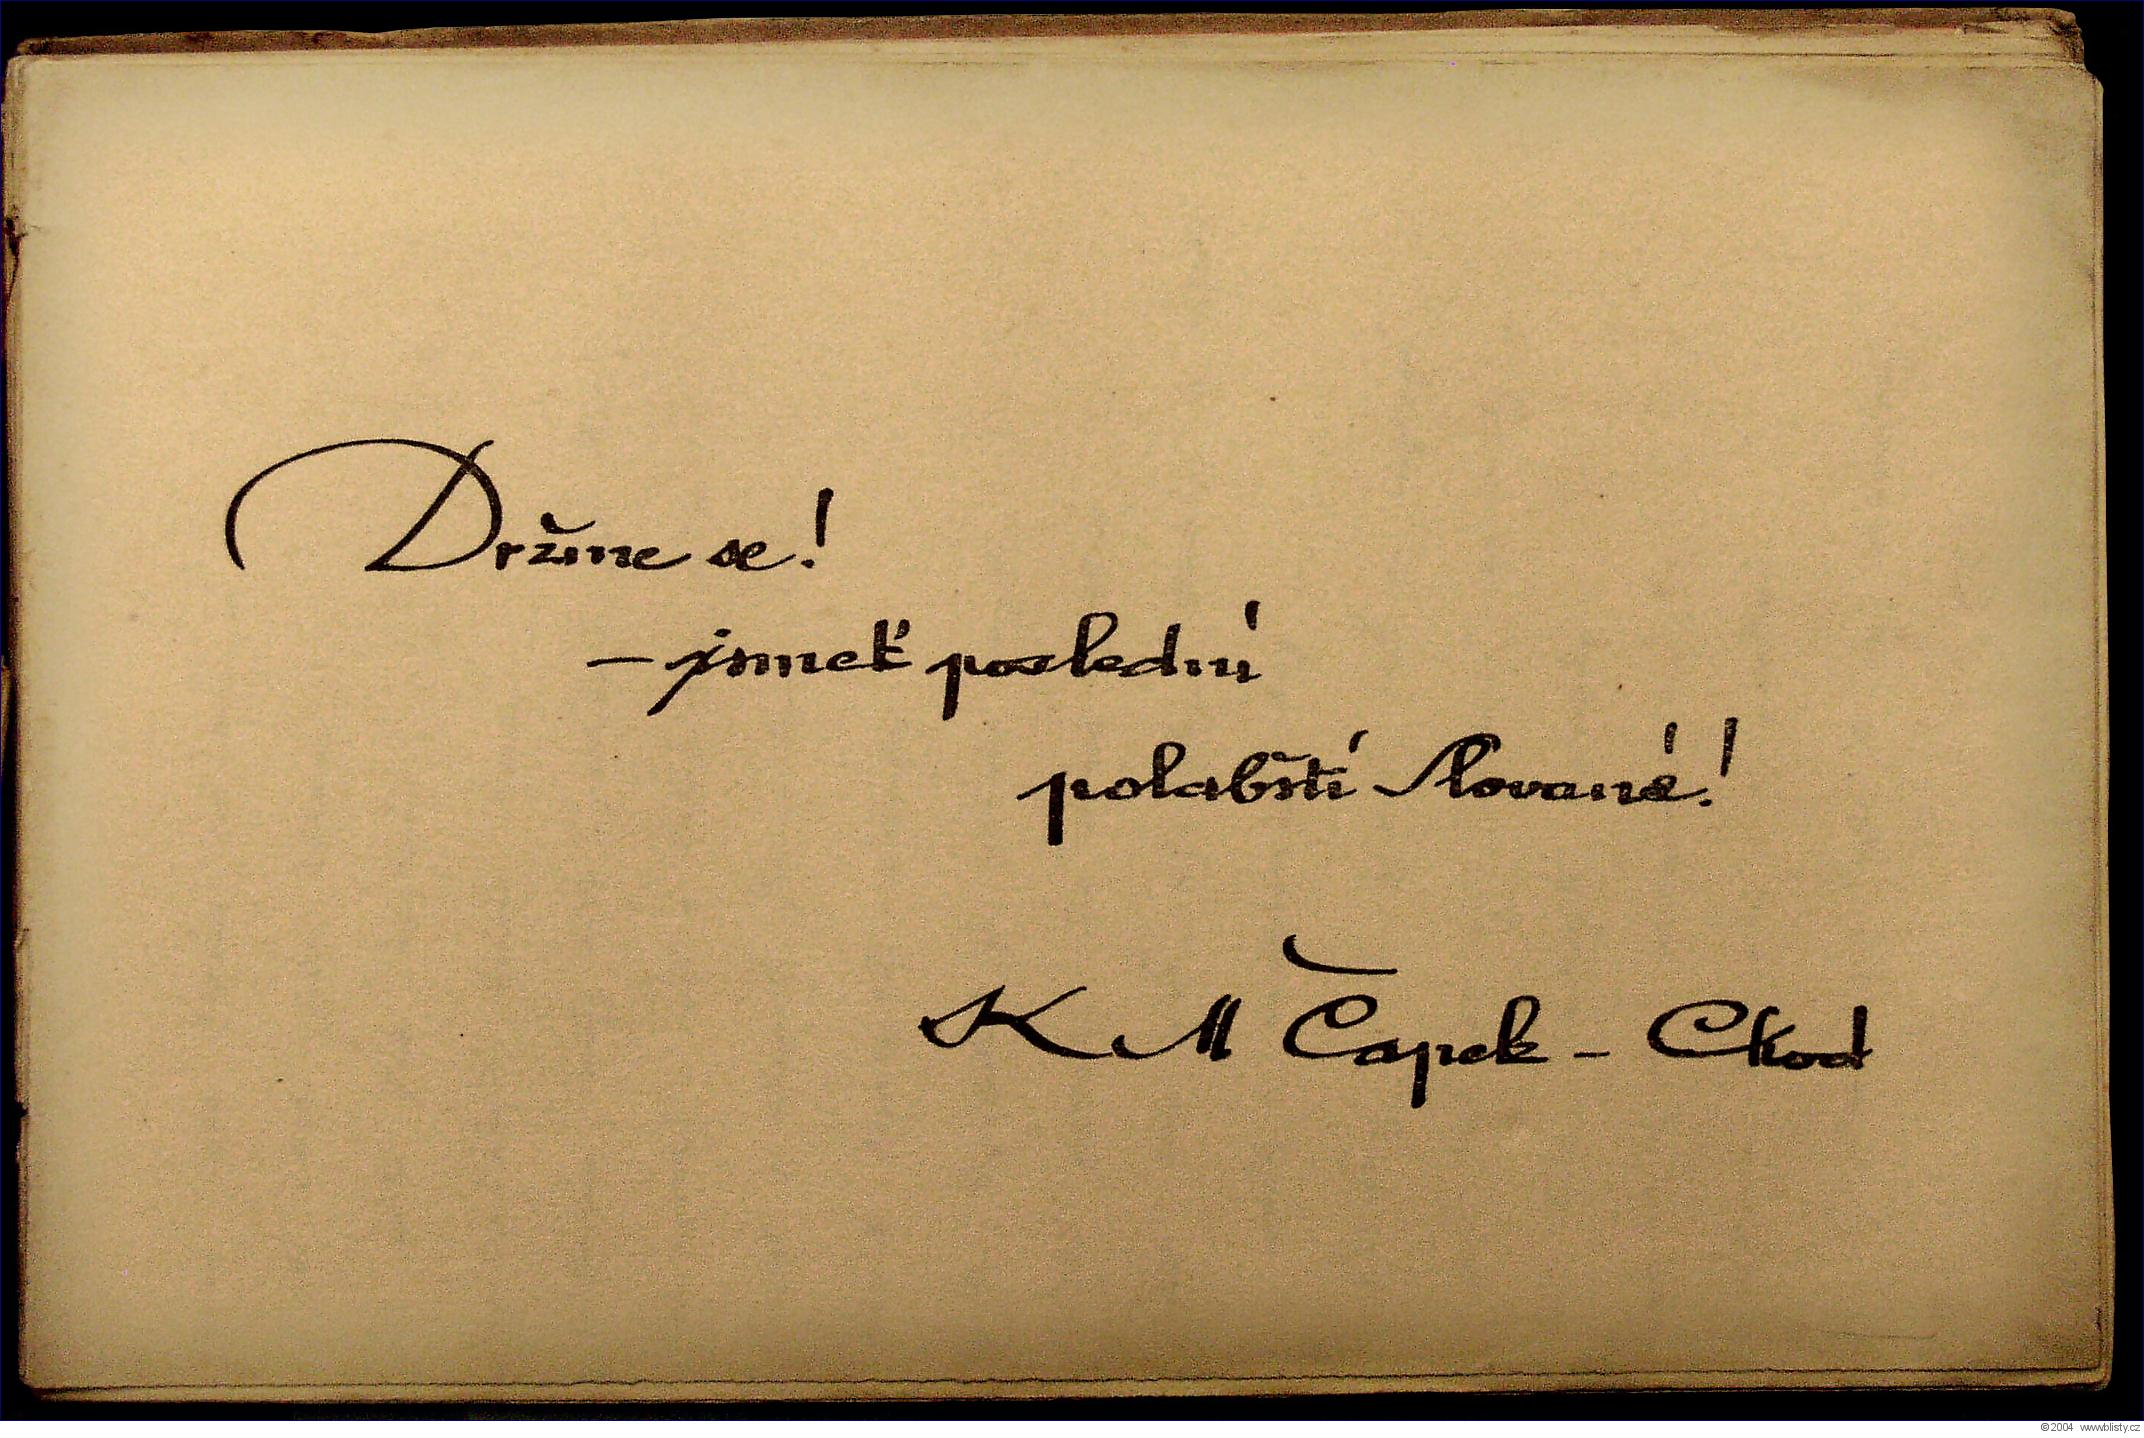 Držme se!
– jsmeť poslední
polabští Slované!
K M Čapek – Chod
© 2004 www.blisty.cz